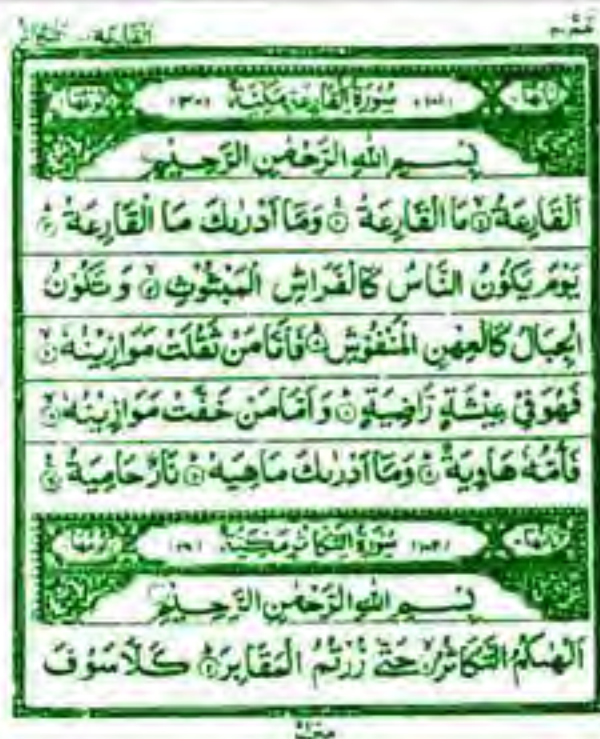 عَمّ ٣٠ القارعة
اٰيَاتُهَا (١٠١) سُوْرَةُ الْقَارِعَةِ مَكِّيَّةٌ (٣٠) رُكُوْعُهَا
بِسْمِ اللّٰهِ الرَّحْمٰنِ الرَّحِيْمِ
اَلْقَارِعَةُ ۙ مَا الْقَارِعَةُ ۚ وَمَآ اَدْرٰىكَ مَا الْقَارِعَةُ ؕ
يَوْمَ يَكُوْنُ النَّاسُ كَالْفَرَاشِ الْمَبْثُوْثِ ۙ وَ تَكُوْنُ
الْجِبَالُ كَالْعِهْنِ الْمَنْفُوْشِ ؕ فَاَمَّا مَنْ ثَقُلَتْ مَوَازِيْنُهٗ ۙ
فَهُوَ فِيْ عِيْشَةٍ رَّاضِيَةٍ ؕ وَ اَمَّا مَنْ خَفَّتْ مَوَازِيْنُهٗ ۙ
فَاُمُّهٗ هَاوِيَةٌ ؕ وَمَآ اَدْرٰىكَ مَاهِيَهْ ؕ نَارٌ حَامِيَةٌ ۠
اٰيَاتُهَا (١٠٢) سُوْرَةُ التَّكَاثُرِ مَكِّيَّةٌ رُكُوْعُهَا
بِسْمِ اللّٰهِ الرَّحْمٰنِ الرَّحِيْمِ
اَلْهٰىكُمُ التَّكَاثُرُ ۙ حَتّٰى زُرْتُمُ الْمَقَابِرَ ؕ كَلَّا سَوْفَ